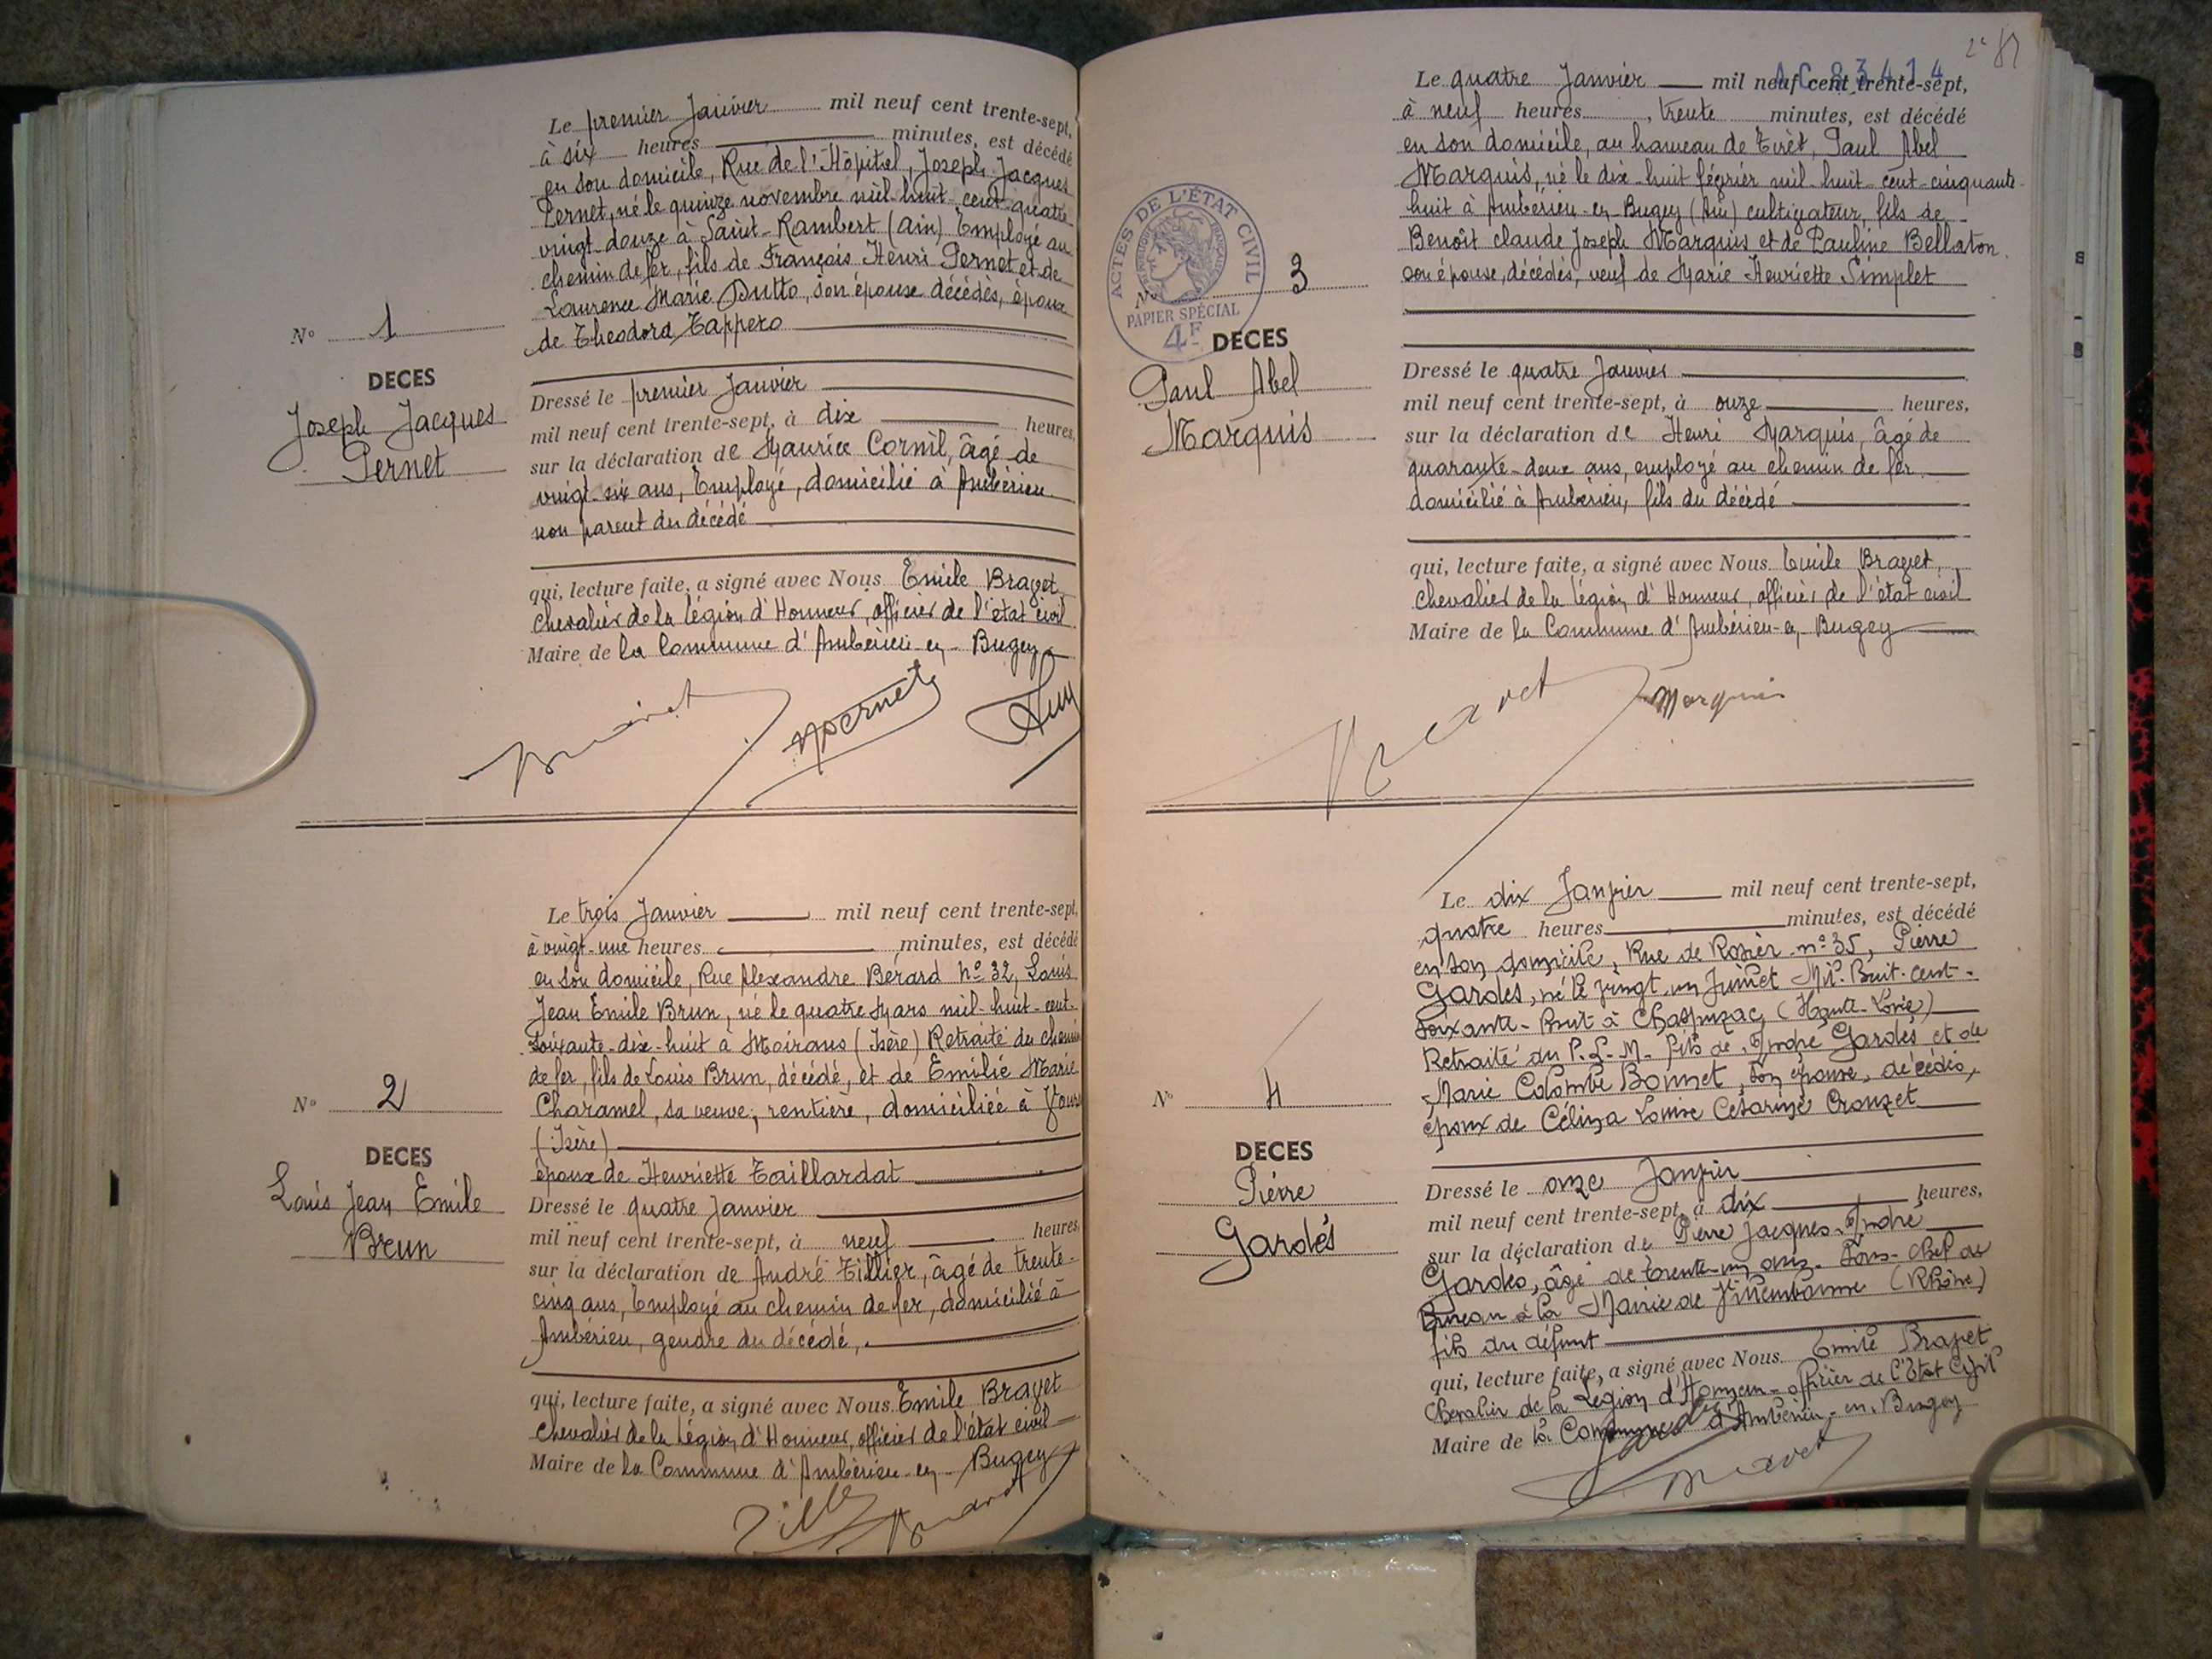 Le premier Janvier mil neuf cent trente-sept,
à six heures minutes, est décédé
en son domicile, Rue de l'Hôpital, Joseph Jacques
Pernet, né le quinze novembre mil-huit-cent-quatre
vingt-douze à Saint-Rambert (Ain) Employé au
chemin de fer, fils de François Henri Pernet et de
Laurence Marie Dutto, son épouse décédés, époux
de Theodora Tappero
N° 1
DECES
Joseph Jacques
Pernet
Dressé le premier Janvier
mil neuf cent trente-sept, à dix heures,
sur la déclaration de Maurice Cornil, âgé de
vingt-six ans, Employé, domicilié à Ambérieu
non parent du décédé
qui, lecture faite, a signé avec Nous Emile Bravet
chevalier de la légion d'Honneur, officier de l'état civil
Maire de la Commune d'Ambérieu-en-Bugey
Bravet
Le trois Janvier mil neuf cent trente-sept,
à vingt-une heures minutes, est décédé
en son domicile, Rue Alexandre Bérard N° 32, Louis
Jean Emile Brun, né le quatre Mars mil-huit-cent-
soixante-dix-huit à Moirans (Isère) Retraité du chemin
de fer, fils de Louis Brun, décédé, et de Emilie Marie
Charamel, sa veuve, rentière, domiciliée à
(Isère)
époux de Henriette Taillardat
N° 2
DECES
Louis Jean Emile
Brun
Dressé le quatre Janvier
mil neuf cent trente-sept, à neuf heures,
sur la déclaration de André Tillier, âgé de trente-
cinq ans, Employé au chemin de fer, domicilié à
Ambérieu, gendre du décédé,
qui, lecture faite, a signé avec Nous Emile Bravet
chevalier de la légion d'Honneur, officier de l'état civil
Maire de la Commune d'Ambérieu-en-Bugey
Bravet
2e 82
83414
Le quatre Janvier mil neuf cent trente-sept,
à neuf heures, trente minutes, est décédé
en son domicile, au hameau de Tiret, Paul Abel
Marquis, né le dix-huit février mil-huit-cent-cinquante-
huit à Ambérieu-en-Bugey (Ain) cultivateur, fils de
Benoît claude Joseph Marquis et de Pauline Bellaton
son épouse, décédés, veuf de Marie Henriette Simplet
ACTES DE L'ÉTAT CIVIL
RÉPUBLIQUE FRANÇAISE
PAPIER SPÉCIAL
4F
N° 3
DECES
Paul Abel
Marquis
Dressé le quatre Janvier
mil neuf cent trente-sept, à onze heures,
sur la déclaration de Henri Marquis, âgé de
quarante-deux ans, employé au chemin de fer
domicilié à Ambérieu, fils du décédé
qui, lecture faite, a signé avec Nous Emile Bravet,
chevalier de la légion d'Honneur, officier de l'état civil
Maire de la Commune d'Ambérieu-en-Bugey
Bravet Marquis
Le dix Janvier mil neuf cent trente-sept,
quatre heures minutes, est décédé
en son domicile, Rue de Rozier n° 35, Pierre
Gardès, né le vingt un Juillet Mil-huit-cent-
soixante-huit à Chaspuzac (Haute-Loire)
Retraité du P.L.M. fils de André Gardès et de
Marie Colombe Bonnet, son épouse, décédés,
époux de Céline Louise Césarine Crouzet
N° 4
DECES
Pierre
Gardès
Dressé le onze Janvier
mil neuf cent trente-sept, à dix heures,
sur la déclaration de Pierre Jacques André
Gardès, âgé de trente-un ans, Sous-Chef de
Bureau à la Mairie de Villeurbanne (Rhône)
fils du défunt
qui, lecture faite, a signé avec Nous Emile Bravet
Chevalier de la Légion d'Honneur-officier de l'Etat Civil
Maire de la Commune d'Ambérieu-en-Bugey
Gardès
Bravet